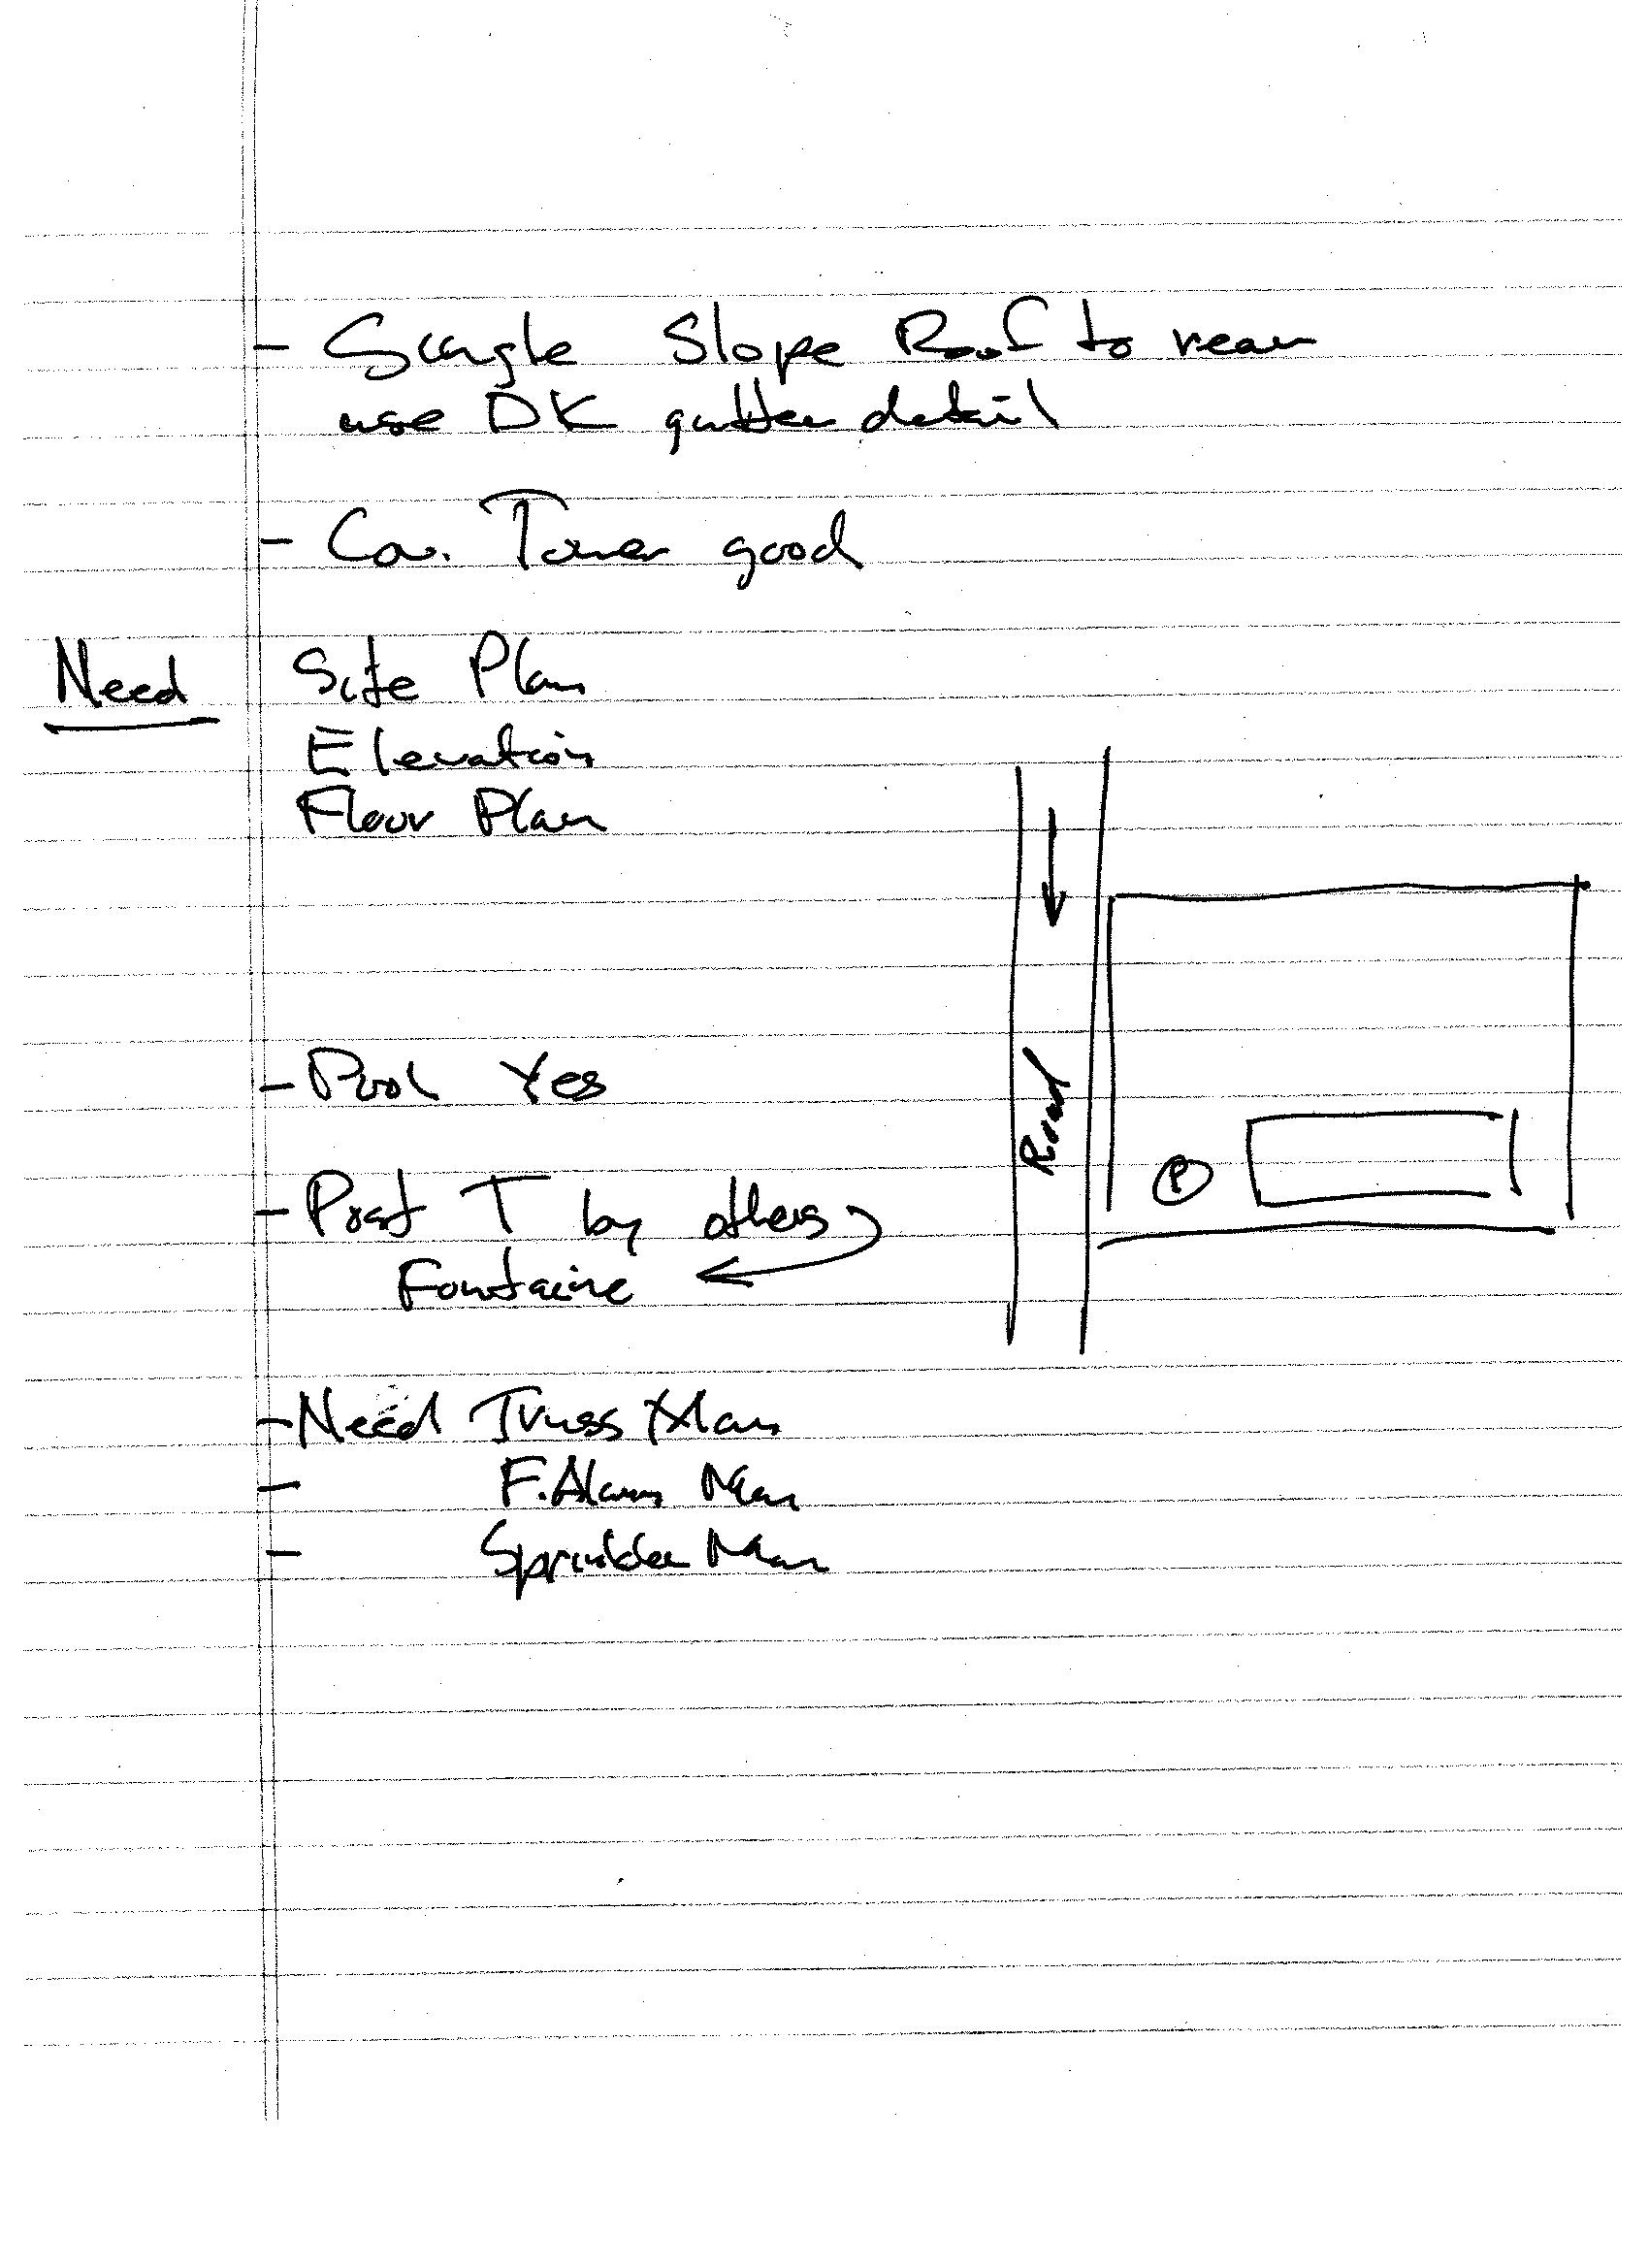 - Single Slope Roof to rear
use DK gutter detail
- Cor. Tower good
Need Site Plan
Elevation
Floor Plan
- Pool Yes
Road
P
- Post T by others
Fountaine
- Need Truss Man
- F. Alarm Man
- Sprinkler Man